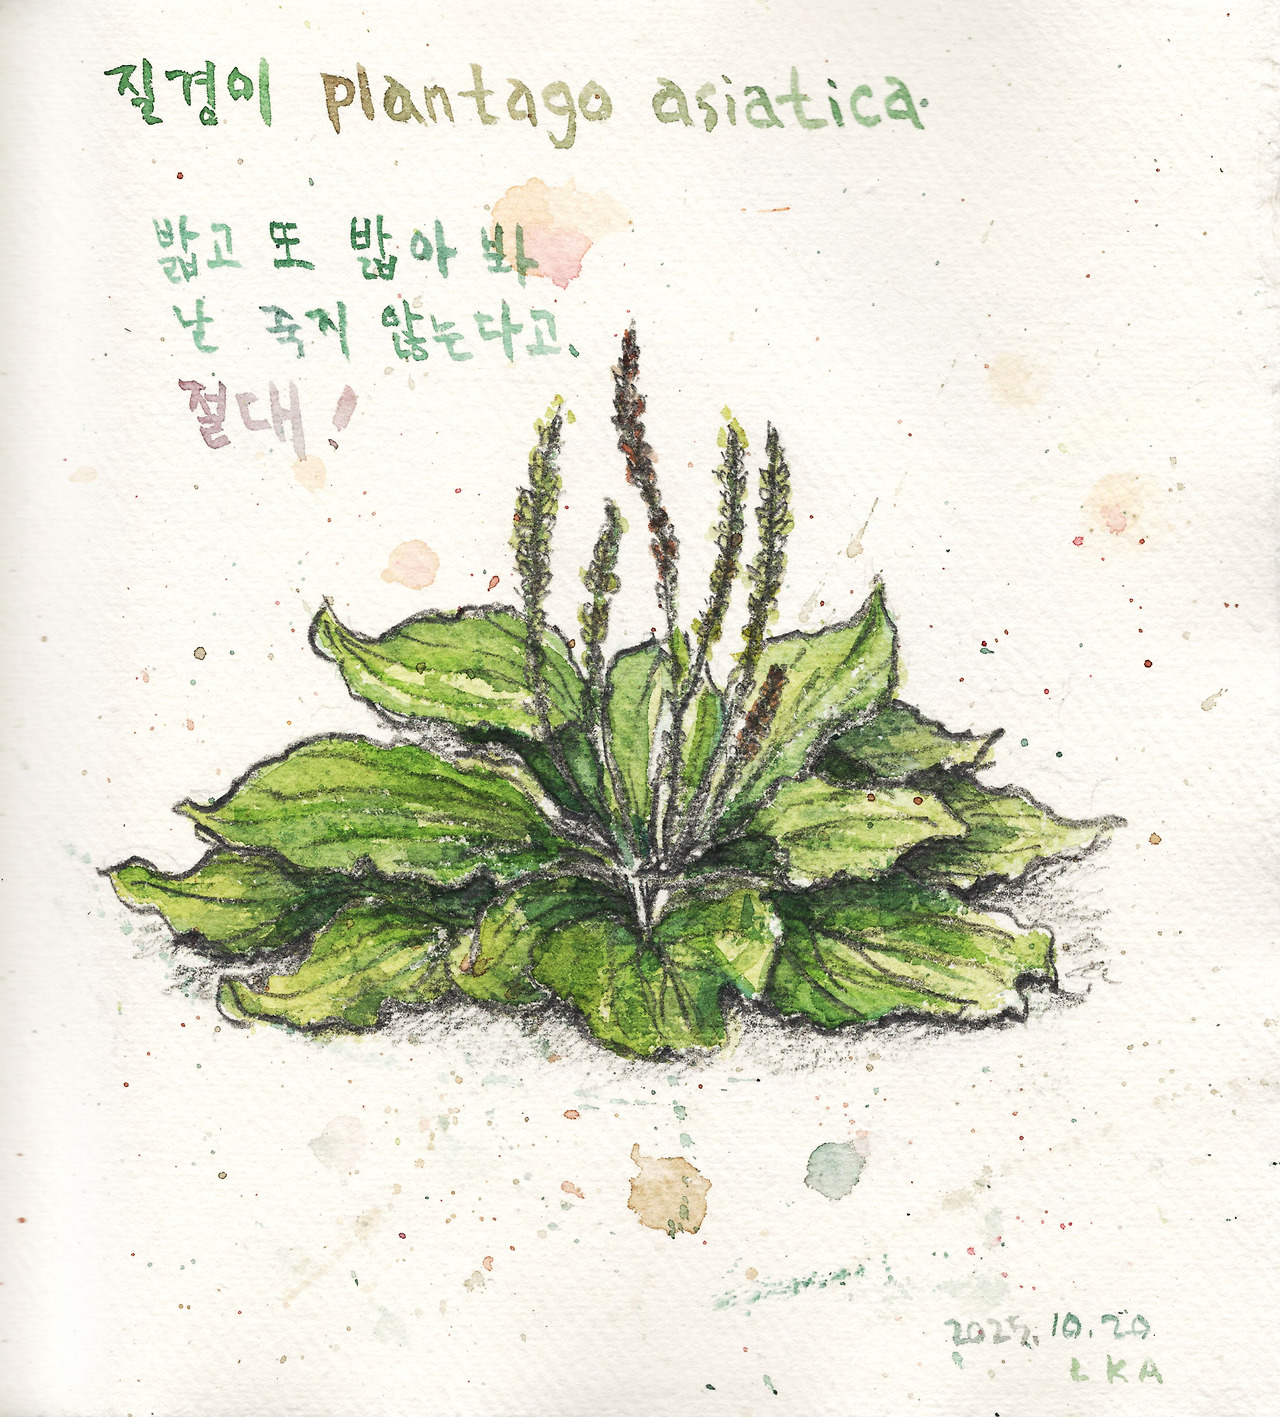 질경이 plantago asiatica.
밟고 또 밟아 봐
난 죽지 않는다고.
절대!
2025.10.20
LKA